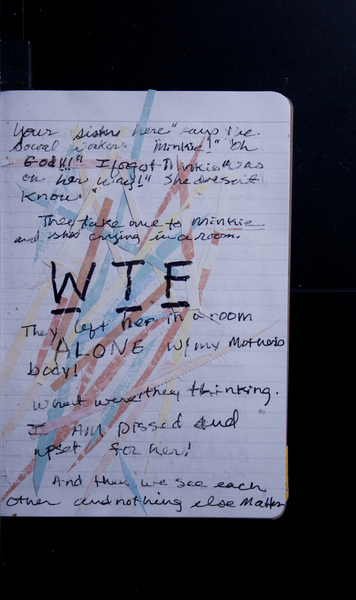 Your sisters here" says the
Social worker. "Minkie!" "Oh
God!!!" I forgot Minkie "was
on her way!" She doesn't
know."
They take me to Minkie
and she's crying in a room.
WTF
They left her in a room
ALONE w/my Mothers
body!
What were they thinking.
I AM pissed and
upset for her!
And then we see each
other and nothing else Matters